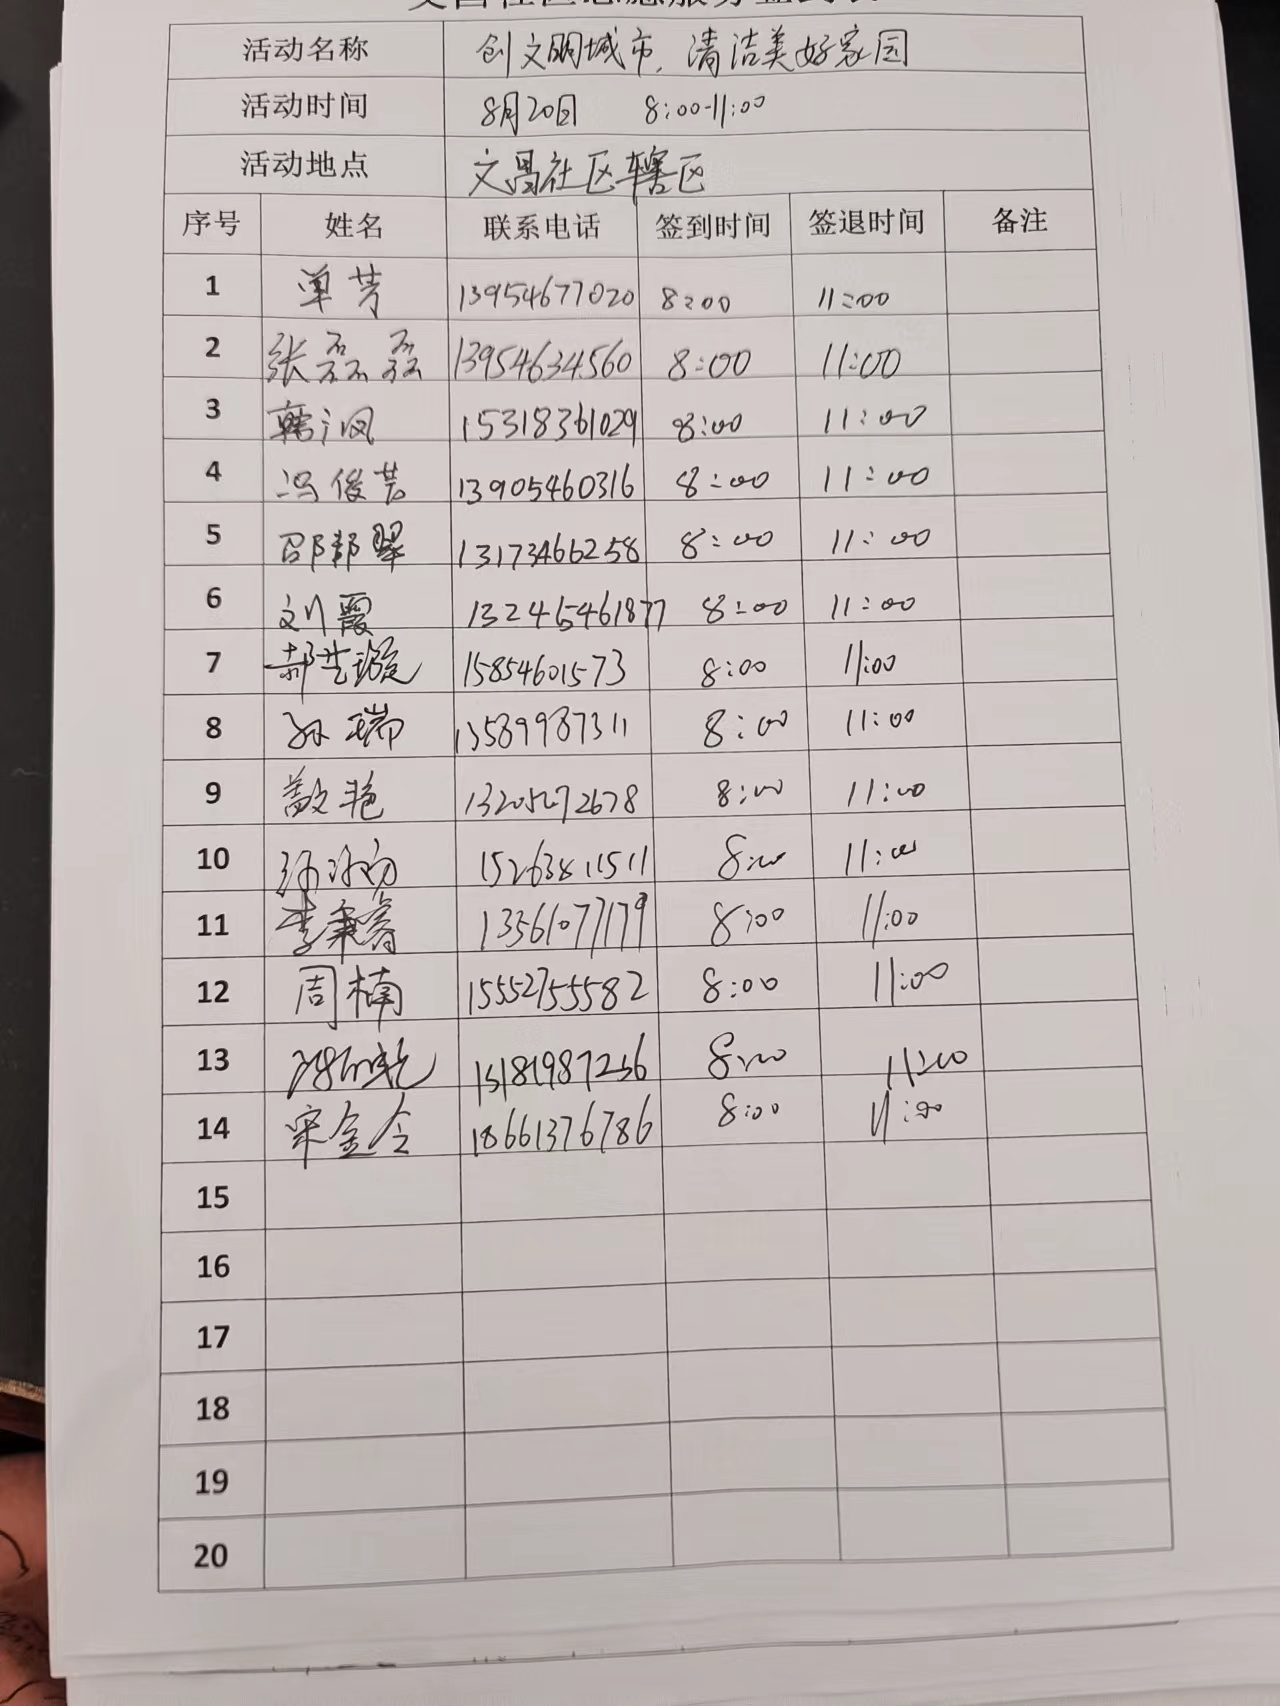 文昌社区志愿服务签到表
活动名称 创文明城市,清洁美好家园
活动时间 8月20日 8:00-11:00
活动地点 文昌社区辖区
序号 姓名 联系电话 签到时间 签退时间 备注
1 单芳 13954677020 8:00 11:00
2 张磊磊 13954634560 8:00 11:00
3 韩 15318361029 8:00 11:00
4 冯俊芸 13905460316 8:00 11:00
5 邵翠 13173466258 8:00 11:00
6 刘霞 132465461877 8:00 11:00
7 郝艺璇 15854601573 8:00 11:00
8 孙瑞 13589987311 8:00 11:00
9 艳 13205272678 8:00 11:00
10 15263811511 8:00 11:00
11 李秉睿 13561077179 8:00 11:00
12 周楠 15552755582 8:00 11:00
13 15181987256 8:00 11:00
14 宋金令 18661376786 8:00 11:00
15
16
17
18
19
20